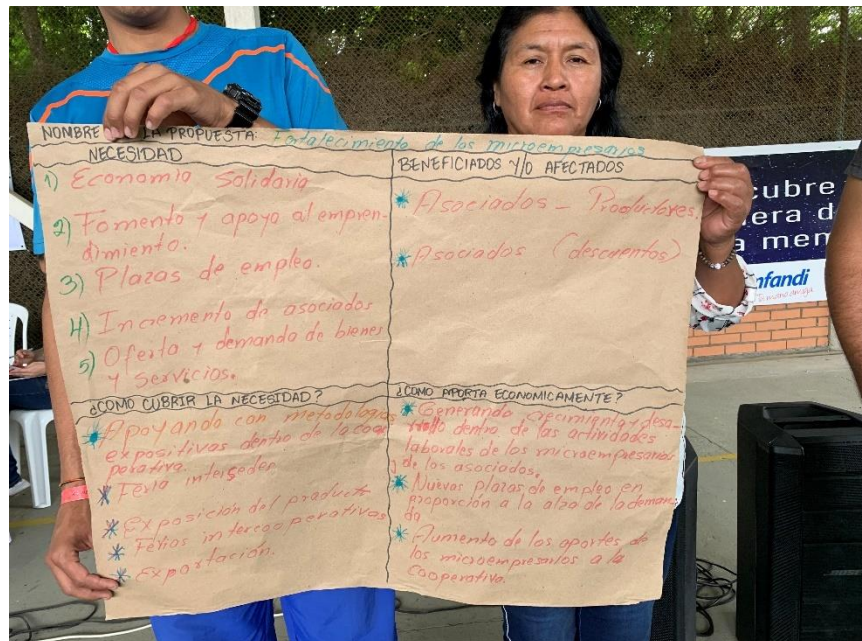 NOMBRE LA PROPUESTA: Fortalecimiento de los microempresarios
NECESIDAD
1) Economia Solidaria
2) Fomento y apoyo al empren-
dimiento.
3) Plazas de empleo.
4) Incremento de asociados
5) Oferta y demanda de bienes
y servicios.
BENEFICIADOS Y/O AFECTADOS
* Asociados - Productores.
* Asociados (descuentos)
¿COMO CUBRIR LA NECESIDAD?
* Apoyando con metodologias
expositivas dentro de la coo
perativa.
* Feria intersedes
* Exposición del producto
* Ferias intercooperativas
* Exportación.
¿COMO APORTA ECONOMICAMENTE?
* Generando crecimiento y desa-
rrollo dentro de las actividades
laborales de los microempresarios
de los asociados.
* Nuevas plazas de empleo en
proporción a la alza de la deman
da
* Aumento de los aportes de
los microempresarios a la
cooperativa.
cubre
era d
a men
nfandi